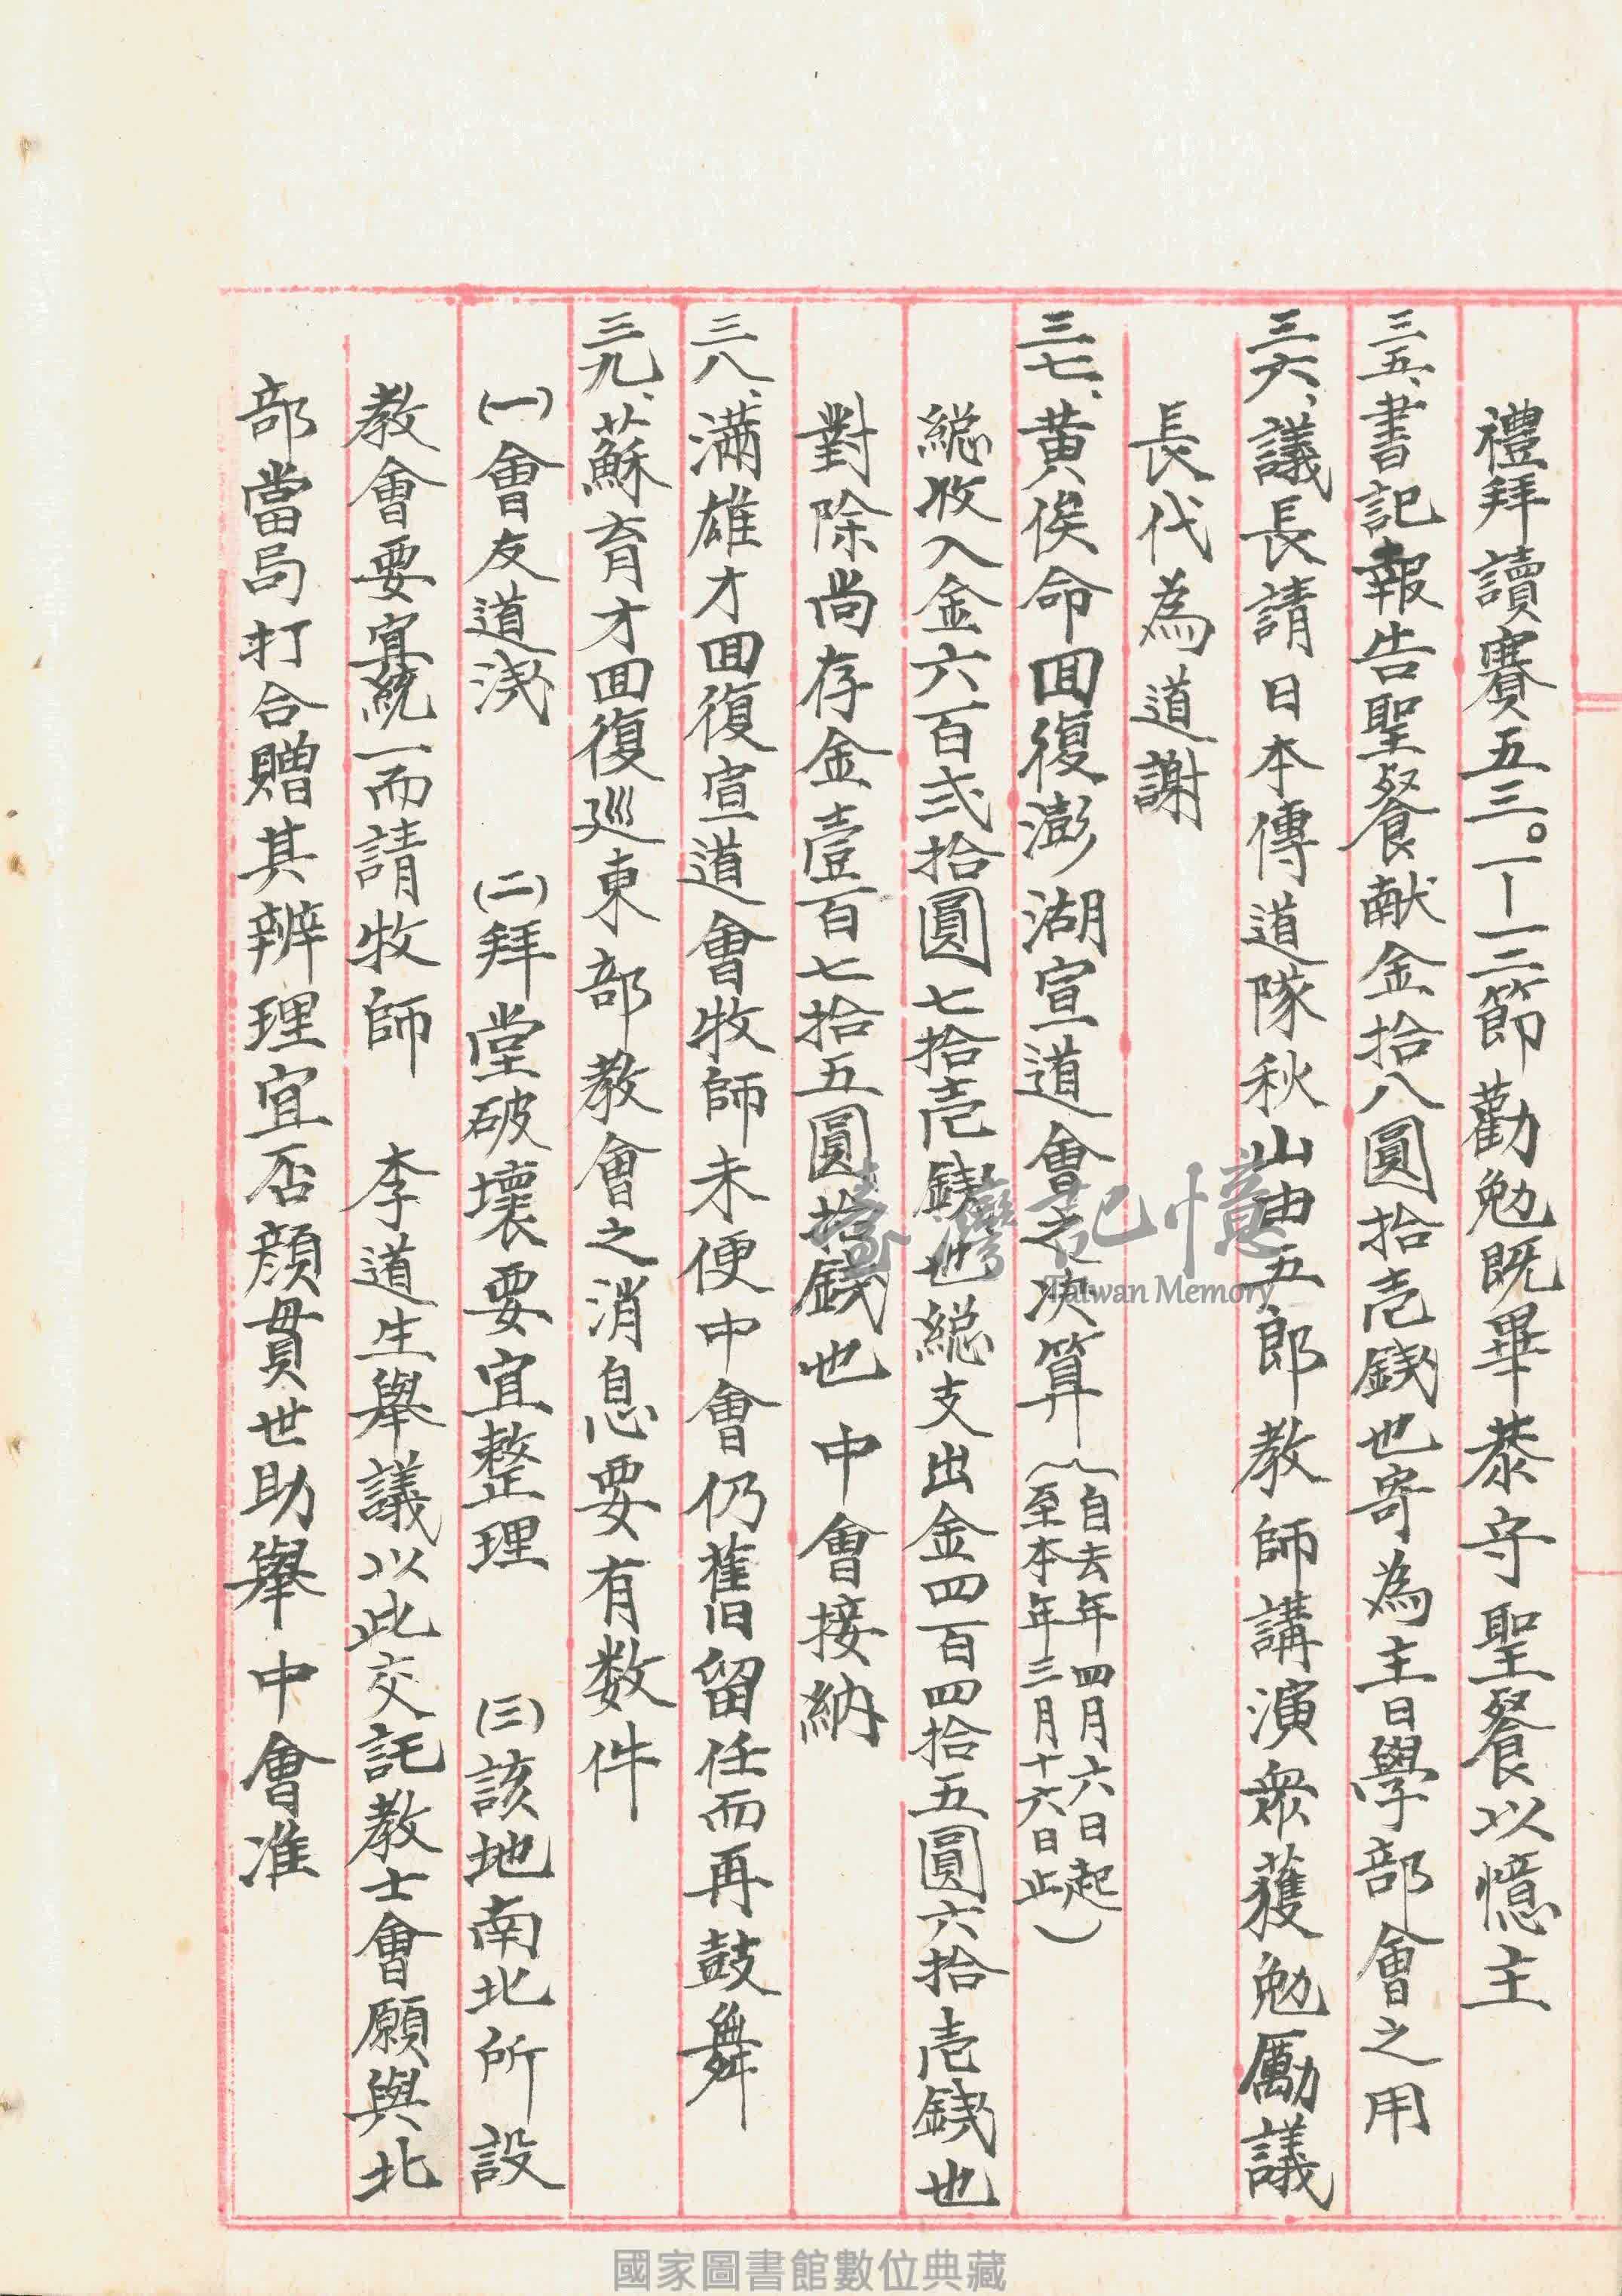 禮拜讀賽五三。一—一二節勸勉既畢恭守聖餐以憶主
三五、書記報告聖餐献金拾八圓拾壱錢也寄為主日學部會之用
三六、議長請日本傳道隊秋山由五郎教師講演衆獲勉勵議
長代為道謝
三七、黄俟命回復澎湖宣道會之决算(自去年四月六日起
至本年三月十六日止)
総收入金六百弐拾圓七拾壱錢也総支出金四百四拾五圓六拾壱錢也
對除尚存金壹百七拾五圓拾錢也 中會接納
三八、滿雄才回復宣道會牧師未便中會仍舊留任而再鼓舞
三九、蘇育才回復巡東部教會之消息要有数件
(一)會友道淺 (二)拜堂破壞要宜整理 (三)該地南北所設
教會要宜統一而請牧師 李道生舉議以此交託教士會願與北
部當局打合贈其辨理宜否顔貫世助舉中會准
臺灣記憶
Taiwan Memory
國家圖書館數位典藏